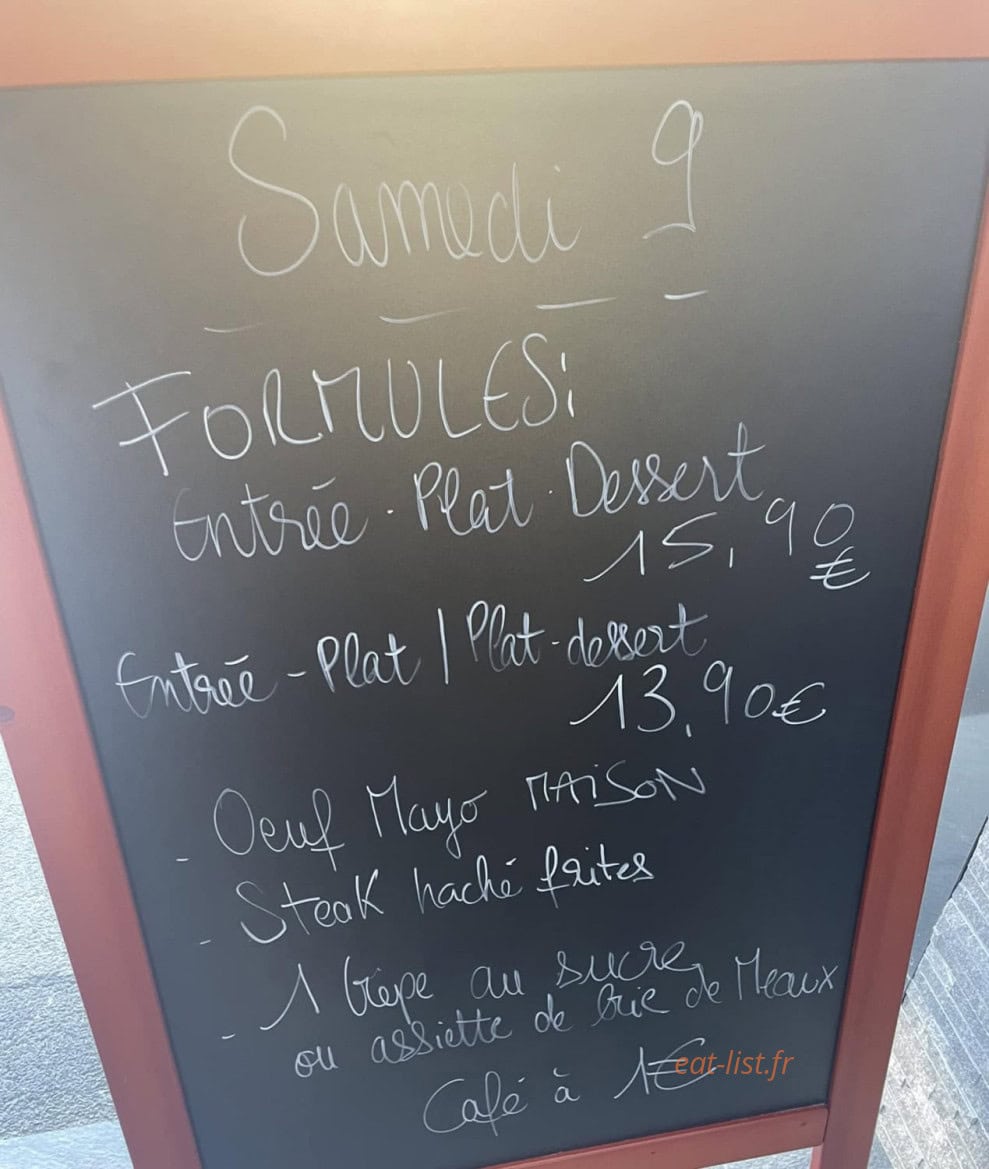 Samedi 9
FORMULES:
Entrée · Plat · Dessert
15,90
€
Entrée - Plat | Plat - dessert
13,90€
- Oeuf Mayo MAISON
- Steak haché frites
- 1 Crêpe au sucre
ou assiette de brie de Meaux
Café à 1€
eat-list.fr